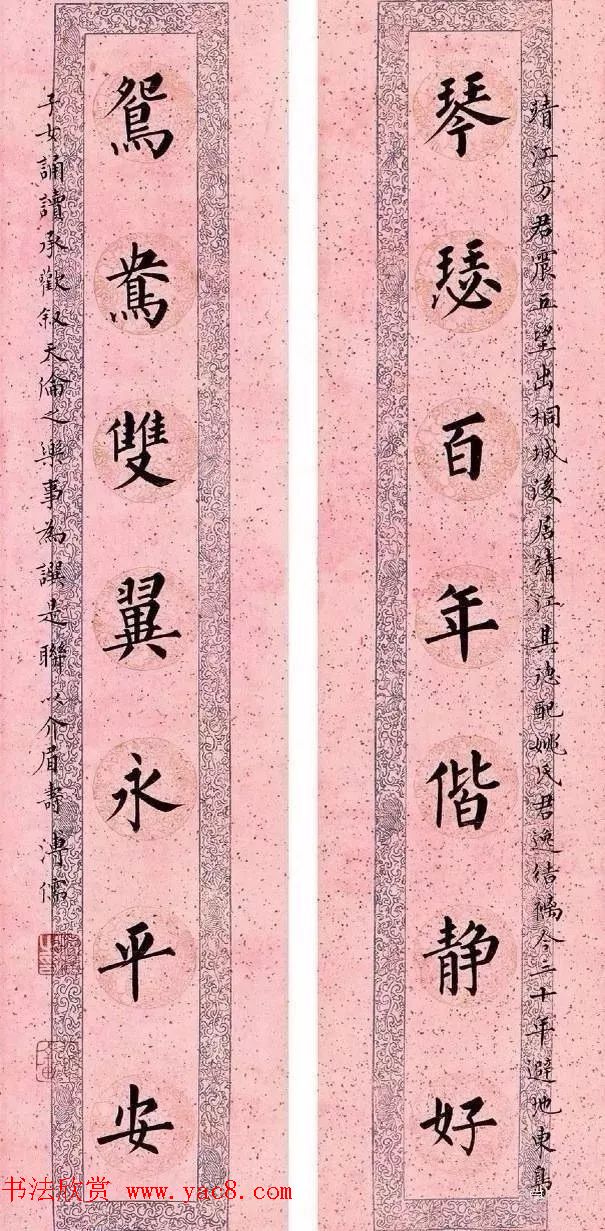 琴瑟百年偕静好
靖江方君震五望出桐城後居靖江其德配姚氏君逸结褵今三十年避地東島
鴛鴦雙翼永平安
子女誦讀承歡叙天倫之樂事為譔是聯以介眉壽 溥儒
书法欣赏 www.yac8.com